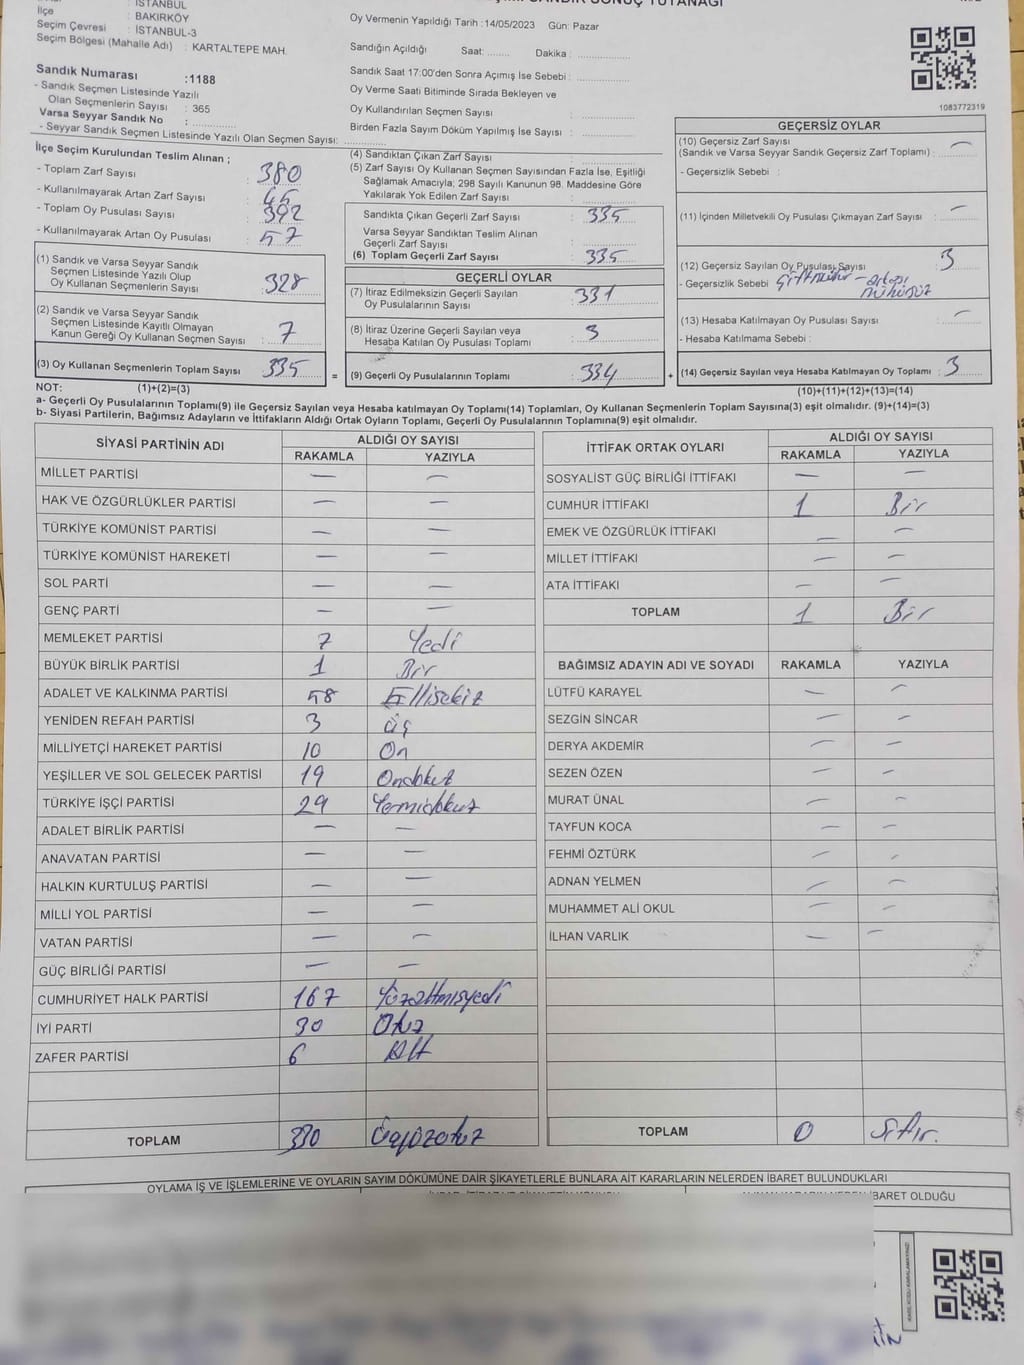 SANDIK SONUÇ TUTANAĞI
: İSTANBUL
İlçe : BAKIRKÖY
Seçim Çevresi : İSTANBUL-3
Seçim Bölgesi (Mahalle Adı) : KARTALTEPE MAH.
Sandık Numarası :1188
- Sandık Seçmen Listesinde Yazılı
Olan Seçmenlerin Sayısı : 365
Varsa Seyyar Sandık No :
- Seyyar Sandık Seçmen Listesinde Yazılı Olan Seçmen Sayısı:
Oy Vermenin Yapıldığı Tarih :14/05/2023 Gün: Pazar
Sandığın Açıldığı Saat: Dakika :
Sandık Saat 17:00'den Sonra Açımış İse Sebebi :
Oy Verme Saati Bitiminde Sırada Bekleyen ve
Oy Kullandırılan Seçmen Sayısı :
Birden Fazla Sayım Döküm Yapılmış İse Sayısı :
1083772319
İlçe Seçim Kurulundan Teslim Alınan ;
- Toplam Zarf Sayısı : 380
- Kullanılmayarak Artan Zarf Sayısı : 45
- Toplam Oy Pusulası Sayısı : 392
- Kullanılmayarak Artan Oy Pusulası : 57
(1) Sandık ve Varsa Seyyar Sandık
Seçmen Listesinde Yazılı Olup
Oy Kullanan Seçmenlerin Sayısı : 328
(2) Sandık ve Varsa Seyyar Sandık
Seçmen Listesinde Kayıtlı Olmayan
Kanun Gereği Oy Kullanan Seçmen Sayısı : 7
(3) Oy Kullanan Seçmenlerin Toplam Sayısı : 335
(4) Sandıktan Çıkan Zarf Sayısı :
(5) Zarf Sayısı Oy Kullanan Seçmen Sayısından Fazla İse, Eşitliği
Sağlamak Amacıyla; 298 Sayılı Kanunun 98. Maddesine Göre
Yakılarak Yok Edilen Zarf Sayısı :
Sandıkta Çıkan Geçerli Zarf Sayısı : 335
Varsa Seyyar Sandıktan Teslim Alınan
Geçerli Zarf Sayısı :
(6) Toplam Geçerli Zarf Sayısı : 335
GEÇERLİ OYLAR
(7) İtiraz Edilmeksizin Geçerli Sayılan
Oy Pusulalarının Sayısı : 331
(8) İtiraz Üzerine Geçerli Sayılan veya
Hesaba Katılan Oy Pusulası Toplamı : 3
= (9) Geçerli Oy Pusulalarının Toplamı : 334
GEÇERSİZ OYLAR
(10) Geçersiz Zarf Sayısı
(Sandık ve Varsa Seyyar Sandık Geçersiz Zarf Toplamı) : —
- Geçersizlik Sebebi :
(11) İçinden Milletvekili Oy Pusulası Çıkmayan Zarf Sayısı : —
(12) Geçersiz Sayılan Oy Pusulası Sayısı : 3
- Geçersizlik Sebebi :
(13) Hesaba Katılmayan Oy Pusulası Sayısı : —
- Hesaba Katılmama Sebebi :
+ (14) Geçersiz Sayılan veya Hesaba Katılmayan Oy Toplamı : 3
NOT: (1)+(2)=(3) (10)+(11)+(12)+(13)=(14)
a- Geçerli Oy Pusulalarının Toplamı(9) ile Geçersiz Sayılan veya Hesaba katılmayan Oy Toplamı(14) Toplamları, Oy Kullanan Seçmenlerin Toplam Sayısına(3) eşit olmalıdır. (9)+(14)=(3)
b- Siyasi Partilerin, Bağımsız Adayların ve İttifakların Aldığı Ortak Oyların Toplamı, Geçerli Oy Pusulalarının Toplamına(9) eşit olmalıdır.
SİYASİ PARTİNİN ADI ALDIĞI OY SAYISI
RAKAMLA YAZIYLA
MİLLET PARTİSİ — —
HAK VE ÖZGÜRLÜKLER PARTİSİ — —
TÜRKİYE KOMÜNİST PARTİSİ — —
TÜRKİYE KOMÜNİST HAREKETİ — —
SOL PARTİ — —
GENÇ PARTİ — —
MEMLEKET PARTİSİ 7 Yedi
BÜYÜK BİRLİK PARTİSİ 1 Bir
ADALET VE KALKINMA PARTİSİ 58 Ellisekiz
YENİDEN REFAH PARTİSİ 3 Üç
MİLLİYETÇİ HAREKET PARTİSİ 10 On
YEŞİLLER VE SOL GELECEK PARTİSİ 19 Ondokuz
TÜRKİYE İŞÇİ PARTİSİ 29 Yirmidokuz
ADALET BİRLİK PARTİSİ — —
ANAVATAN PARTİSİ — —
HALKIN KURTULUŞ PARTİSİ — —
MİLLİ YOL PARTİSİ — —
VATAN PARTİSİ — —
GÜÇ BİRLİĞİ PARTİSİ — —
CUMHURİYET HALK PARTİSİ 167 Yüzaltmışyedi
İYİ PARTİ 30 Otuz
ZAFER PARTİSİ 6 Altı
TOPLAM 330 Üçyüzotuz
İTTİFAK ORTAK OYLARI ALDIĞI OY SAYISI
RAKAMLA YAZIYLA
SOSYALİST GÜÇ BİRLİĞİ İTTİFAKI — —
CUMHUR İTTİFAKI 1 Bir
EMEK VE ÖZGÜRLÜK İTTİFAKI — —
MİLLET İTTİFAKI — —
ATA İTTİFAKI — —
TOPLAM 1 Bir
BAĞIMSIZ ADAYIN ADI VE SOYADI RAKAMLA YAZIYLA
LÜTFÜ KARAYEL — —
SEZGİN SİNCAR — —
DERYA AKDEMİR — —
SEZEN ÖZEN — —
MURAT ÜNAL — —
TAYFUN KOCA — —
FEHMİ ÖZTÜRK — —
ADNAN YELMEN — —
MUHAMMET ALİ OKUL — —
İLHAN VARLIK — —
TOPLAM 0 Sıfır.
OYLAMA İŞ VE İŞLEMLERİNE VE OYLARIN SAYIM DÖKÜMÜNE DAİR ŞİKAYETLERLE BUNLARA AİT KARARLARIN NELERDEN İBARET BULUNDUKLARI
İBARET OLDUĞU